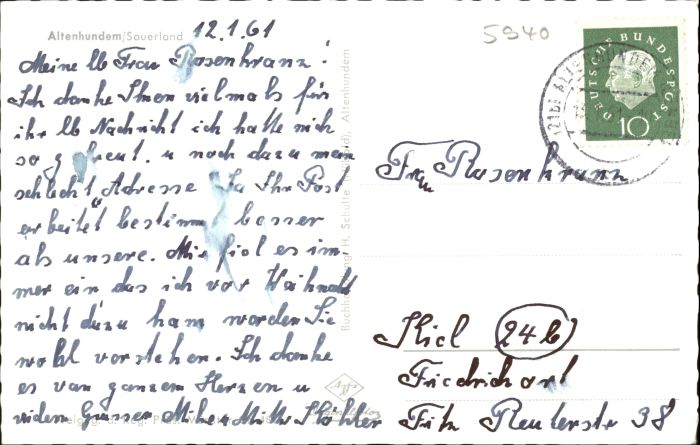 Altenhundem/Sauerland 12.1.61
Meine lb Frau Rosenkranz!
Ich danke Ihnen vielmals für
ihr lb Nachricht ich hatte mich
so gefreut. u noch dazu mein
schlecht Adresse Ja Ihr Post
arbeitet bestimm besser
als unsere. Mir fiel es im-
mer ein das ich vor Weihnacht
nicht dazu kam werden Sie
wohl verstehen. Ich danke
es von ganzem Herzen u
vielen Grüssen
5940
DEUTSCHE BUNDESPOST
10
Frau Rosenkranz
Kiel (24b)
Friedrichsort
Fritz Reuterstr 38
Buchhandlung H. Schulte Altenhundem